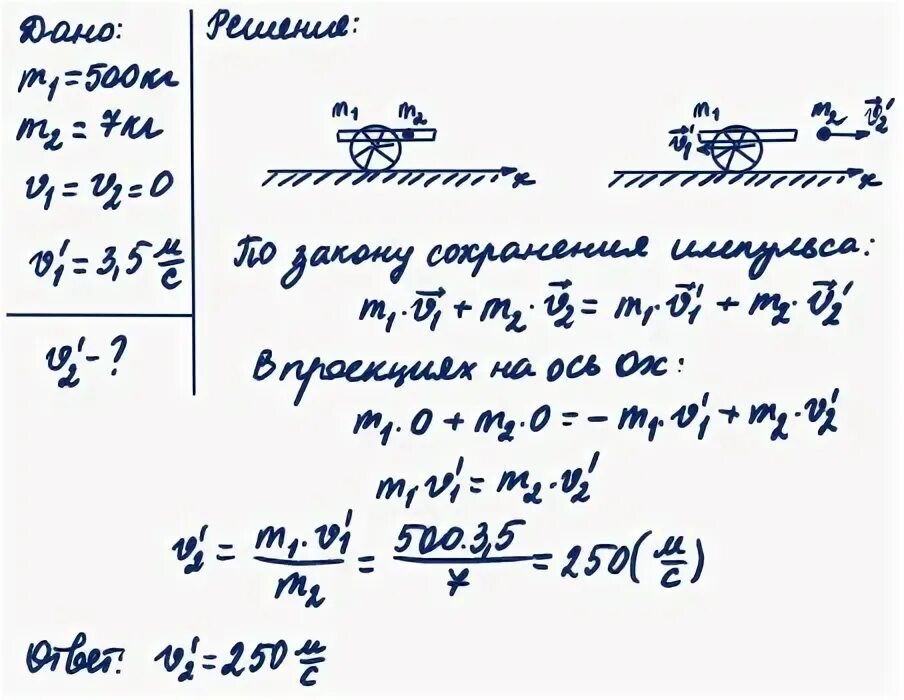 Дано:
m₁ = 500 кг
m₂ = 7 кг
v₁ = v₂ = 0
v₁' = 3,5 м/с
v₂' - ?
Решение:
m₁ m₂
x
m₁ m₂ v⃗₂'
v⃗₁'
x
По закону сохранения импульса:
m₁·v⃗₁ + m₂·v⃗₂ = m₁·v⃗₁' + m₂·v⃗₂'
В проекциях на ось Ох:
m₁·0 + m₂·0 = - m₁·v₁' + m₂·v₂'
m₁·v₁' = m₂·v₂'
v₂' = (m₁·v₁')/m₂ = (500·3,5)/7 = 250 (м/с)
Ответ: v₂' = 250 м/с